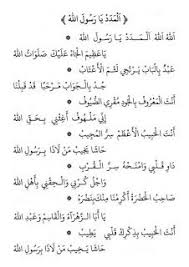 ﴿ اَلْمَدَدْ يَا رَسُولَ اللهْ ﴾
اَللهْ اَللهْ اَلْمَـدَدْ يَـا رَسُـولَ اللهْ
يَاعَظِيمَ الْجَاهْ عَلَيْكَ صَلَوَاتُ اللهْ
عَبْدٌ بِالْبَابْ يَرْتَجِي لَثْمَ الْأَعْتَابْ
جُدْ بِالْجَوَابْ مَرْحَبًا قَدْ قَبِلْنَا
أَنْتَ الْمَعْرُوفْ بِالْجُودِ مُقْرِي الضُّيُوفْ
إِنِّي مَلْهُوفْ أَغِثْنِي بِحَـقِّ اللهْ
أَنْتَ الْحَبِيبْ الْأَعْظَمْ سِرُّ الْمُجِيبْ
حَاشَا يَخِيبْ مَنْ لَاذَا بِرَسُولِ اللهْ
دَاوِ قَـلْبِي وَأَبْحِنِي سِـرَّ الْـقُـرْبِ
وَاجْلُ كَرْبِي وَالْحِقْنِي بِأَهْلِ اللهْ
صَاحِبُ الْحَضْرَةْ أَكْرِمْنَا مِنْكَ بِنَظْرَةْ
يَا أَبَا الزَّهْرَاءْ وَالْقَاسِمْ وَعَبْدِ اللهْ
أَنْتَ الْحَبِيبْ بِذِكْرِكَ قَلْبِي
حَاشَا يَخِيبْ مَنْ لَاذَا بِرَسُولِ اللهْ